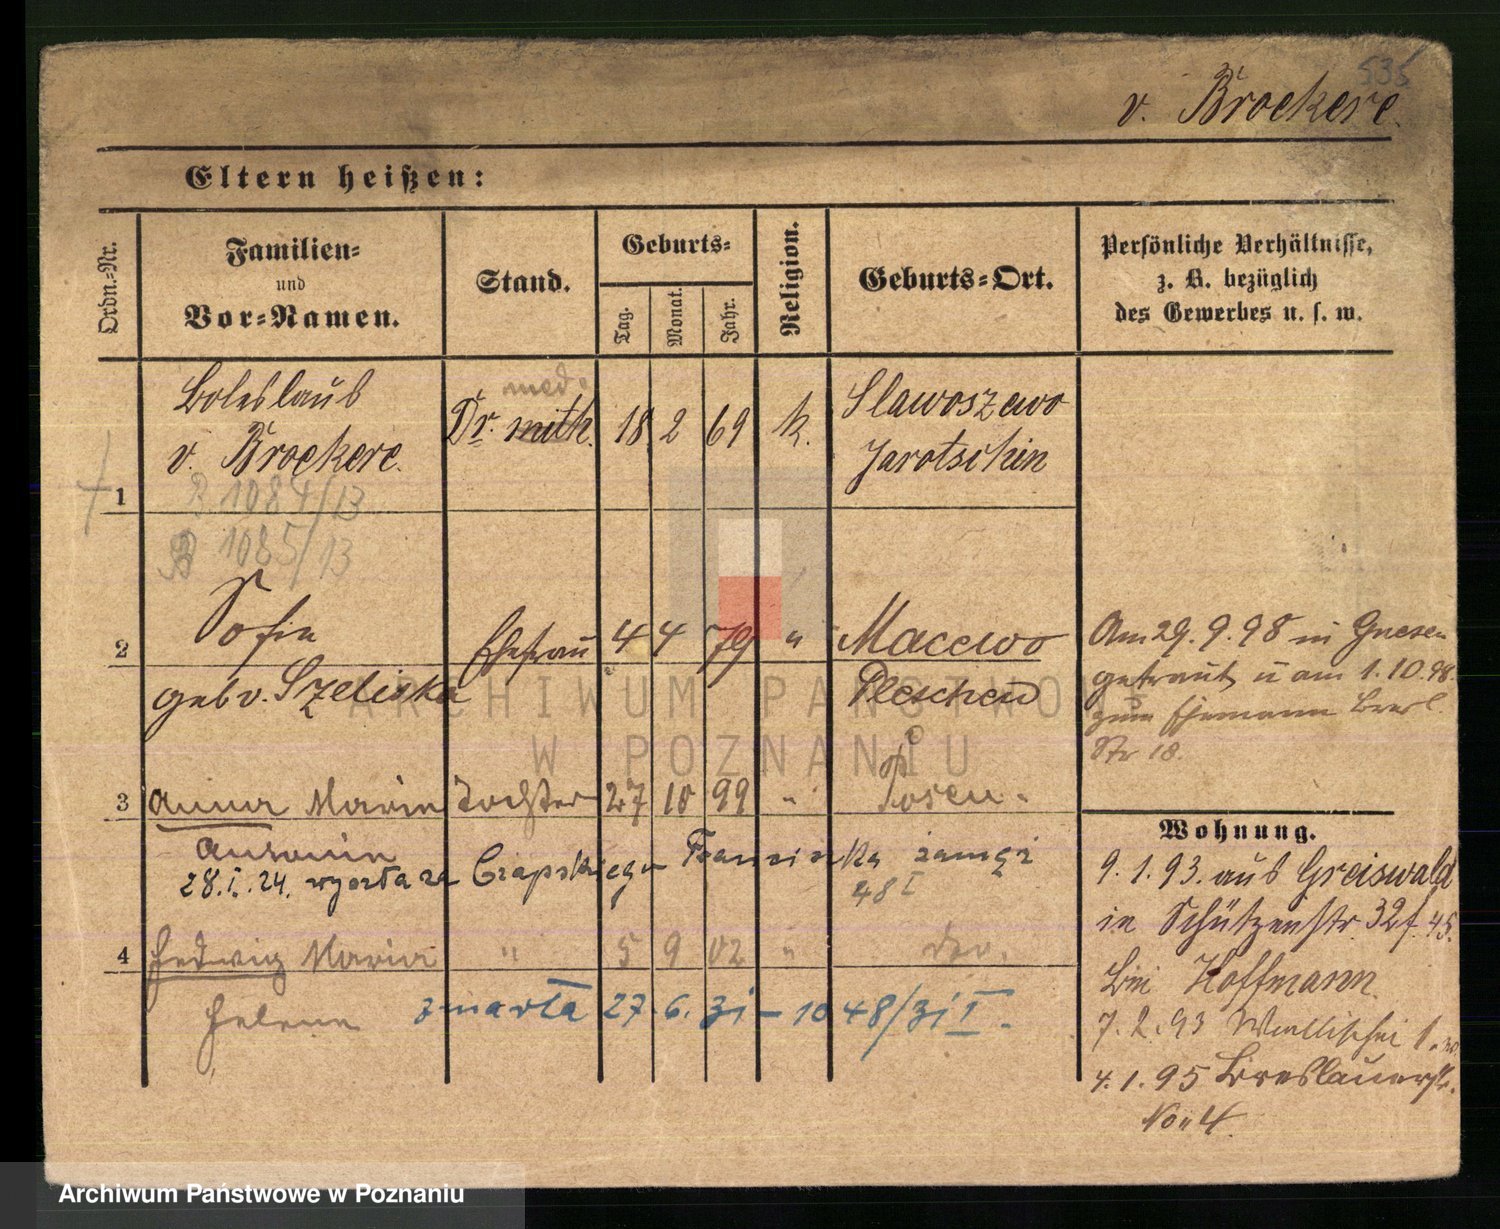 535
v. Broekere.
Eltern heißen:
Ordn.-Nr.
Familien-
und
Vor-Namen.
Stand.
Geburts-
Tag.
Monat.
Jahr.
Religion.
Geburts-Ort.
Persönliche Verhältnisse,
z. B. bezüglich
des Gewerbes u. s. w.
1
Boleslaus
v. Broekere.
med.
Dr.
18 2 69
k.
Slawoszewo
Jarotschin
B 1084/13
B 1085/13
2
Sofie
geb v. Szeliska
Ehefrau
4 4 79
"
Macewo
Pleschen
Am 29. 9. 98 in Gnesen
getraut u am 1. 10. 98
zum Ehemann Bresl.
Str 18.
3
Anna Maria
Tochter
27 10 99
"
Posen.
28. I. 24. wyszła za Czapskiego Franciszka zamąż
48 I
4
Hedwig Maria
"
5 9 02
"
Helena
zmarła 27. 6. 31 - 1048/31 I.
Wohnung.
9. 1. 93. aus Greiswald
in Schützenstr. 32
bei Hoffmann.
7. 2. 93 Wallischei
4. 1. 95 Breslauerstr.
No 4.
ARCHIWUM PAŃSTWOWE
W POZNANIU
Archiwum Państwowe w Poznaniu